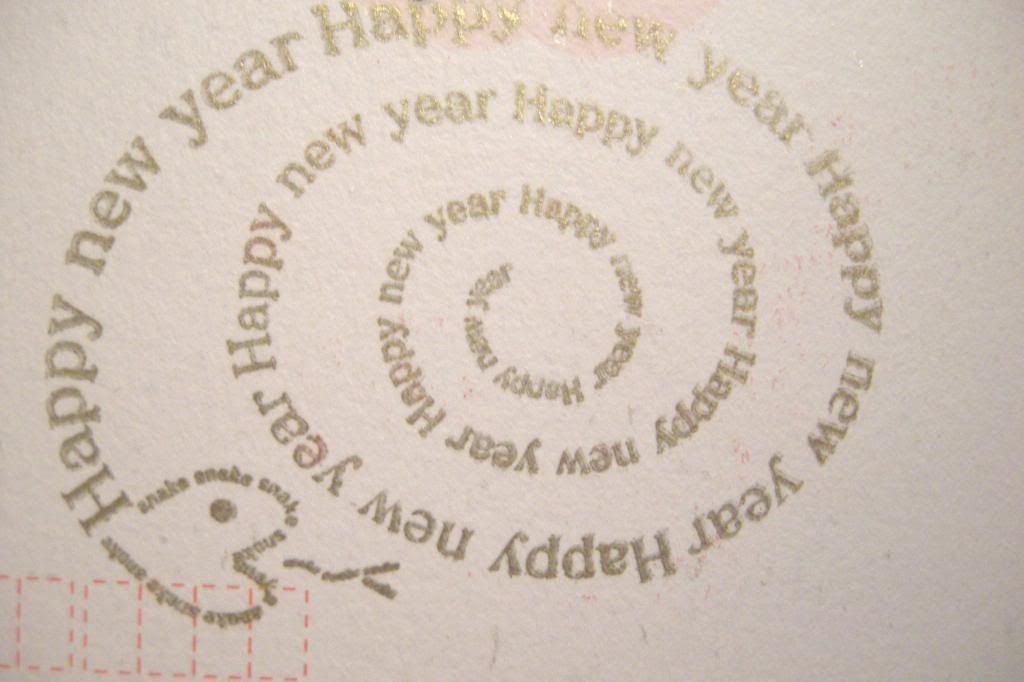 Happy new year Happy new year Happy new year Happy new year Happy new year Happy new year Happy new year Happy new year Happy new year Happy new year
snake snake snake
snake snake snake snake